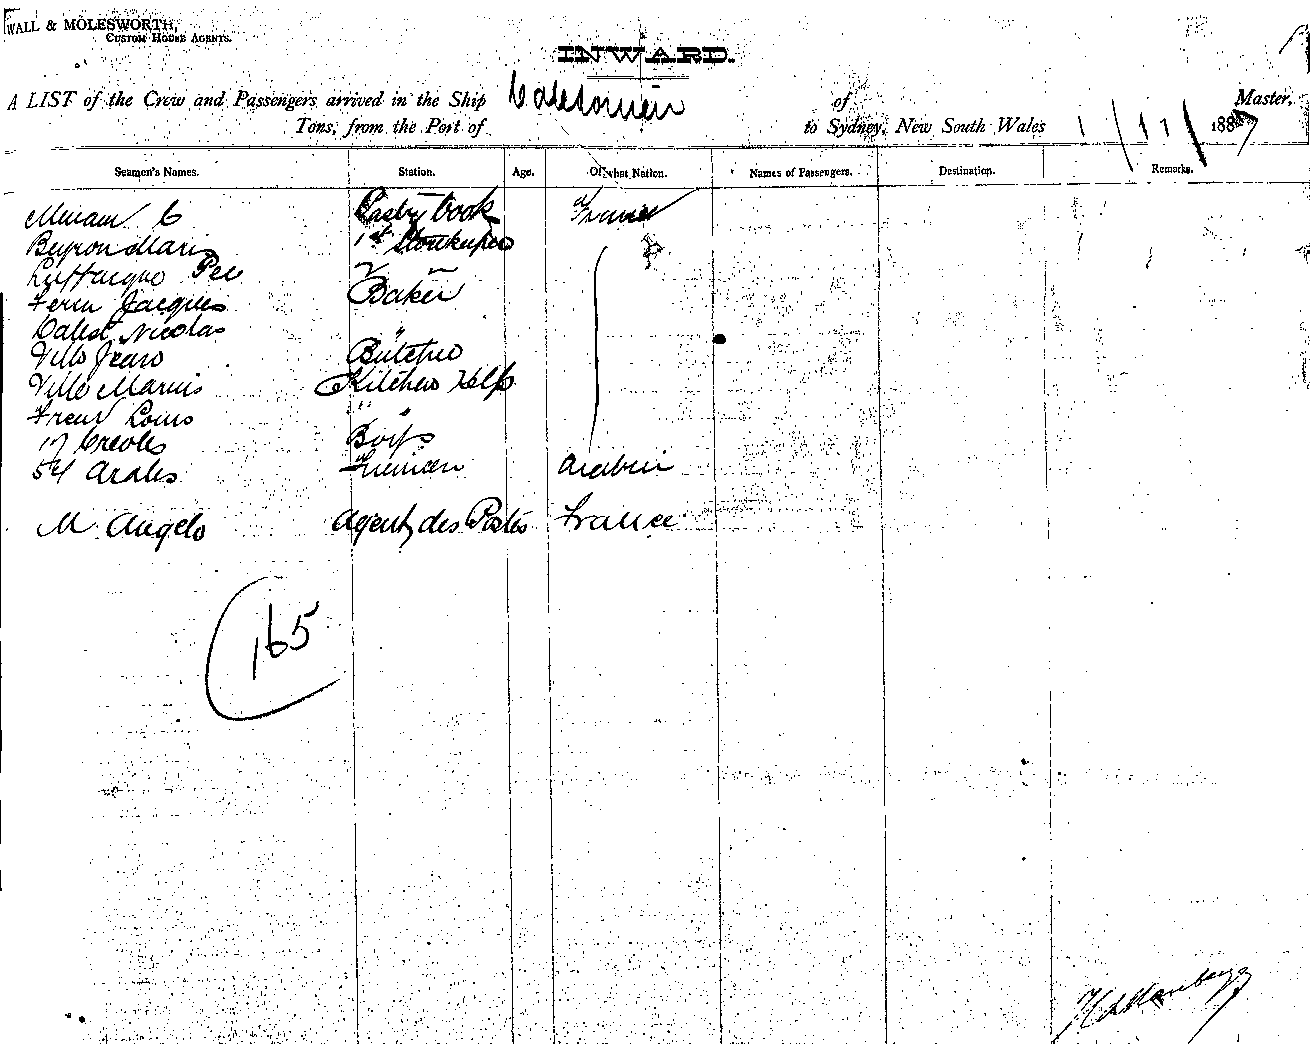 WALL & MOLESWORTH,
CUSTOM HOUSE AGENTS.
INWARD.
A LIST of the Crew and Passengers arrived in the Ship Caledonien of Master,
Tons, from the Port of to Sydney, New South Wales 1/11/ 1887
Seamen's Names. Station. Age. Of what Nation. Names of Passengers. Destination. Remarks.
C Pastry Cook France
Beyron Marius 1st Storekeeper "
Baker
Jacques
Nicolas "
Ville Jean Butcher
Ville Marius Kitchen Help
Louis " "
17 Creoles Boys
54 Arabes Firemen Arabia
M Angelo Agent des Postes France
165